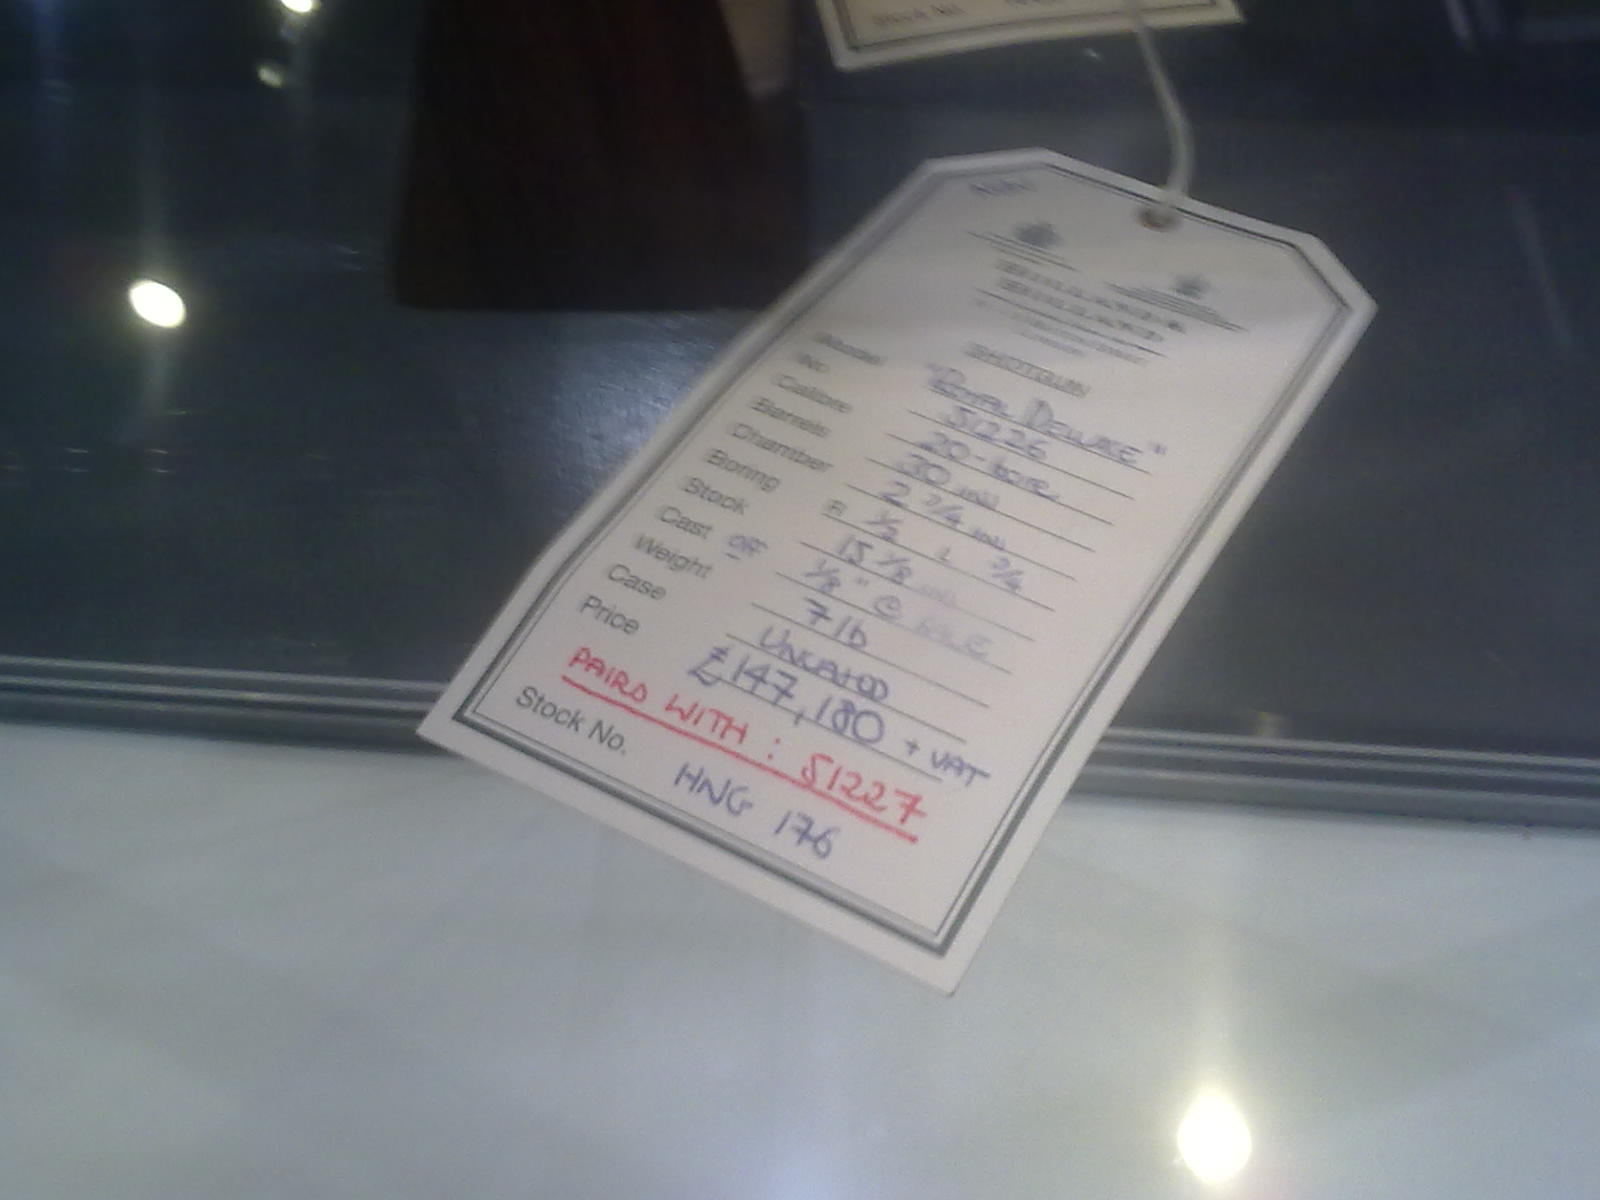 Stock No.
HOLLAND &
HOLLAND
SHOTGUN
Model "ROYAL DELUXE"
No 51226
Calibre 20-bore
Barrels 30 ins
Chamber 2 3/4 ins
Boring R 1/2 L 3/4
Stock 15 1/8 ins
Cast OFF 1/8" @
Weight 7 lb
Case UNCASED
Price £147,180 + VAT
PAIRD WITH : 51227
Stock No. HNG 176